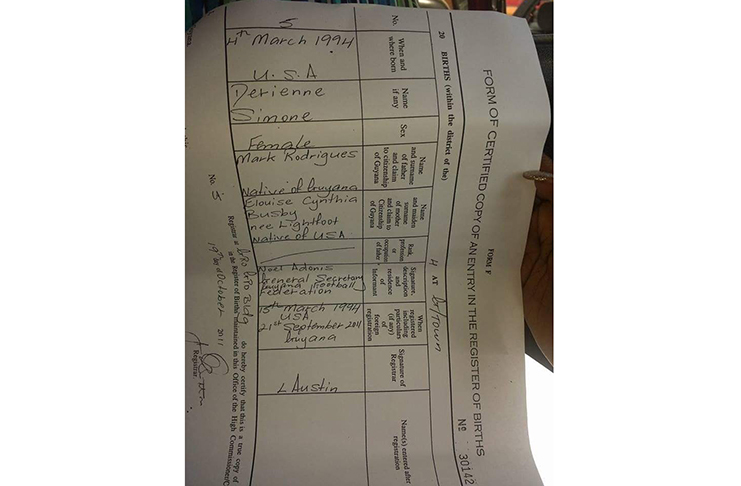 FORM F
FORM OF CERTIFIED COPY OF AN ENTRY IN THE REGISTER OF BIRTHS
Nº 30142
20 BIRTHS (within the district of the) H AT G/TOWN
No.
When and
where born
Name
if any
Sex
Name
and surname
of father
and claim
to citizenship
of Guyana
Name
and maiden
surname
of mother
and claim to
Citizenship
of Guyana
Rank,
profession
or
occupation
of father
Signature,
description
and
residence
of
Informant
When
registered
including
particulars
(if any)
of
foreign
registration
Signature of
Registrar
Name(s) entered after
registration
5
4th March 1994
U.S.A
Derienne
Simone
Female
Mark Rodrigues
Native of Guyana
Elouise Cynthia
Busby
nee Lightfoot
Native of USA
Noel Adonis
General Secretary
Guyana Football
Federation
15th March 1994
USA
21st September 2011
Guyana
L Austin
Registrar at GRO GPO Bldg do hereby certify that this is a true copy of
No. 5 in the Register of Births maintained in this Office of the High Commissioner/C
19th day of October 2011
Registrar